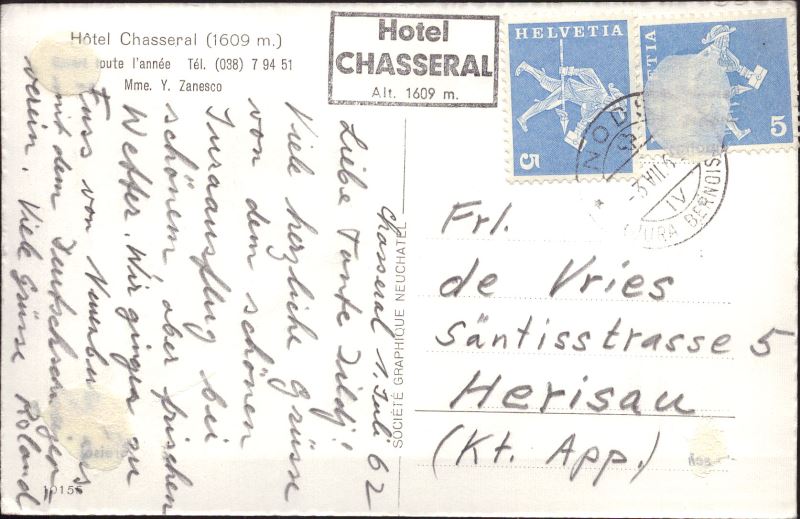 Hôtel Chasseral (1609 m.)
toute l'année Tél. (038) 7 94 51
Mme. Y. Zanesco
Hotel
CHASSERAL
Alt. 1609 m.
HELVETIA
5
HELVETIA
5
NODS
-3.VII.6
IV
(JURA BERNOIS)
Chasseral 1. Juli 62
Liebe Tante Dildj!
Viele herzliche Grüsse
von dem schönen
Juraausflug bei
schönem aber frischen
Wetter. Wir gingen zu
Fuss von
mit dem
verein. Viele Grüsse Roland
SOCIÉTÉ GRAPHIQUE NEUCHATEL
Frl.
de Vries
Säntisstrasse 5
Herisau
(Kt. App.)
10155